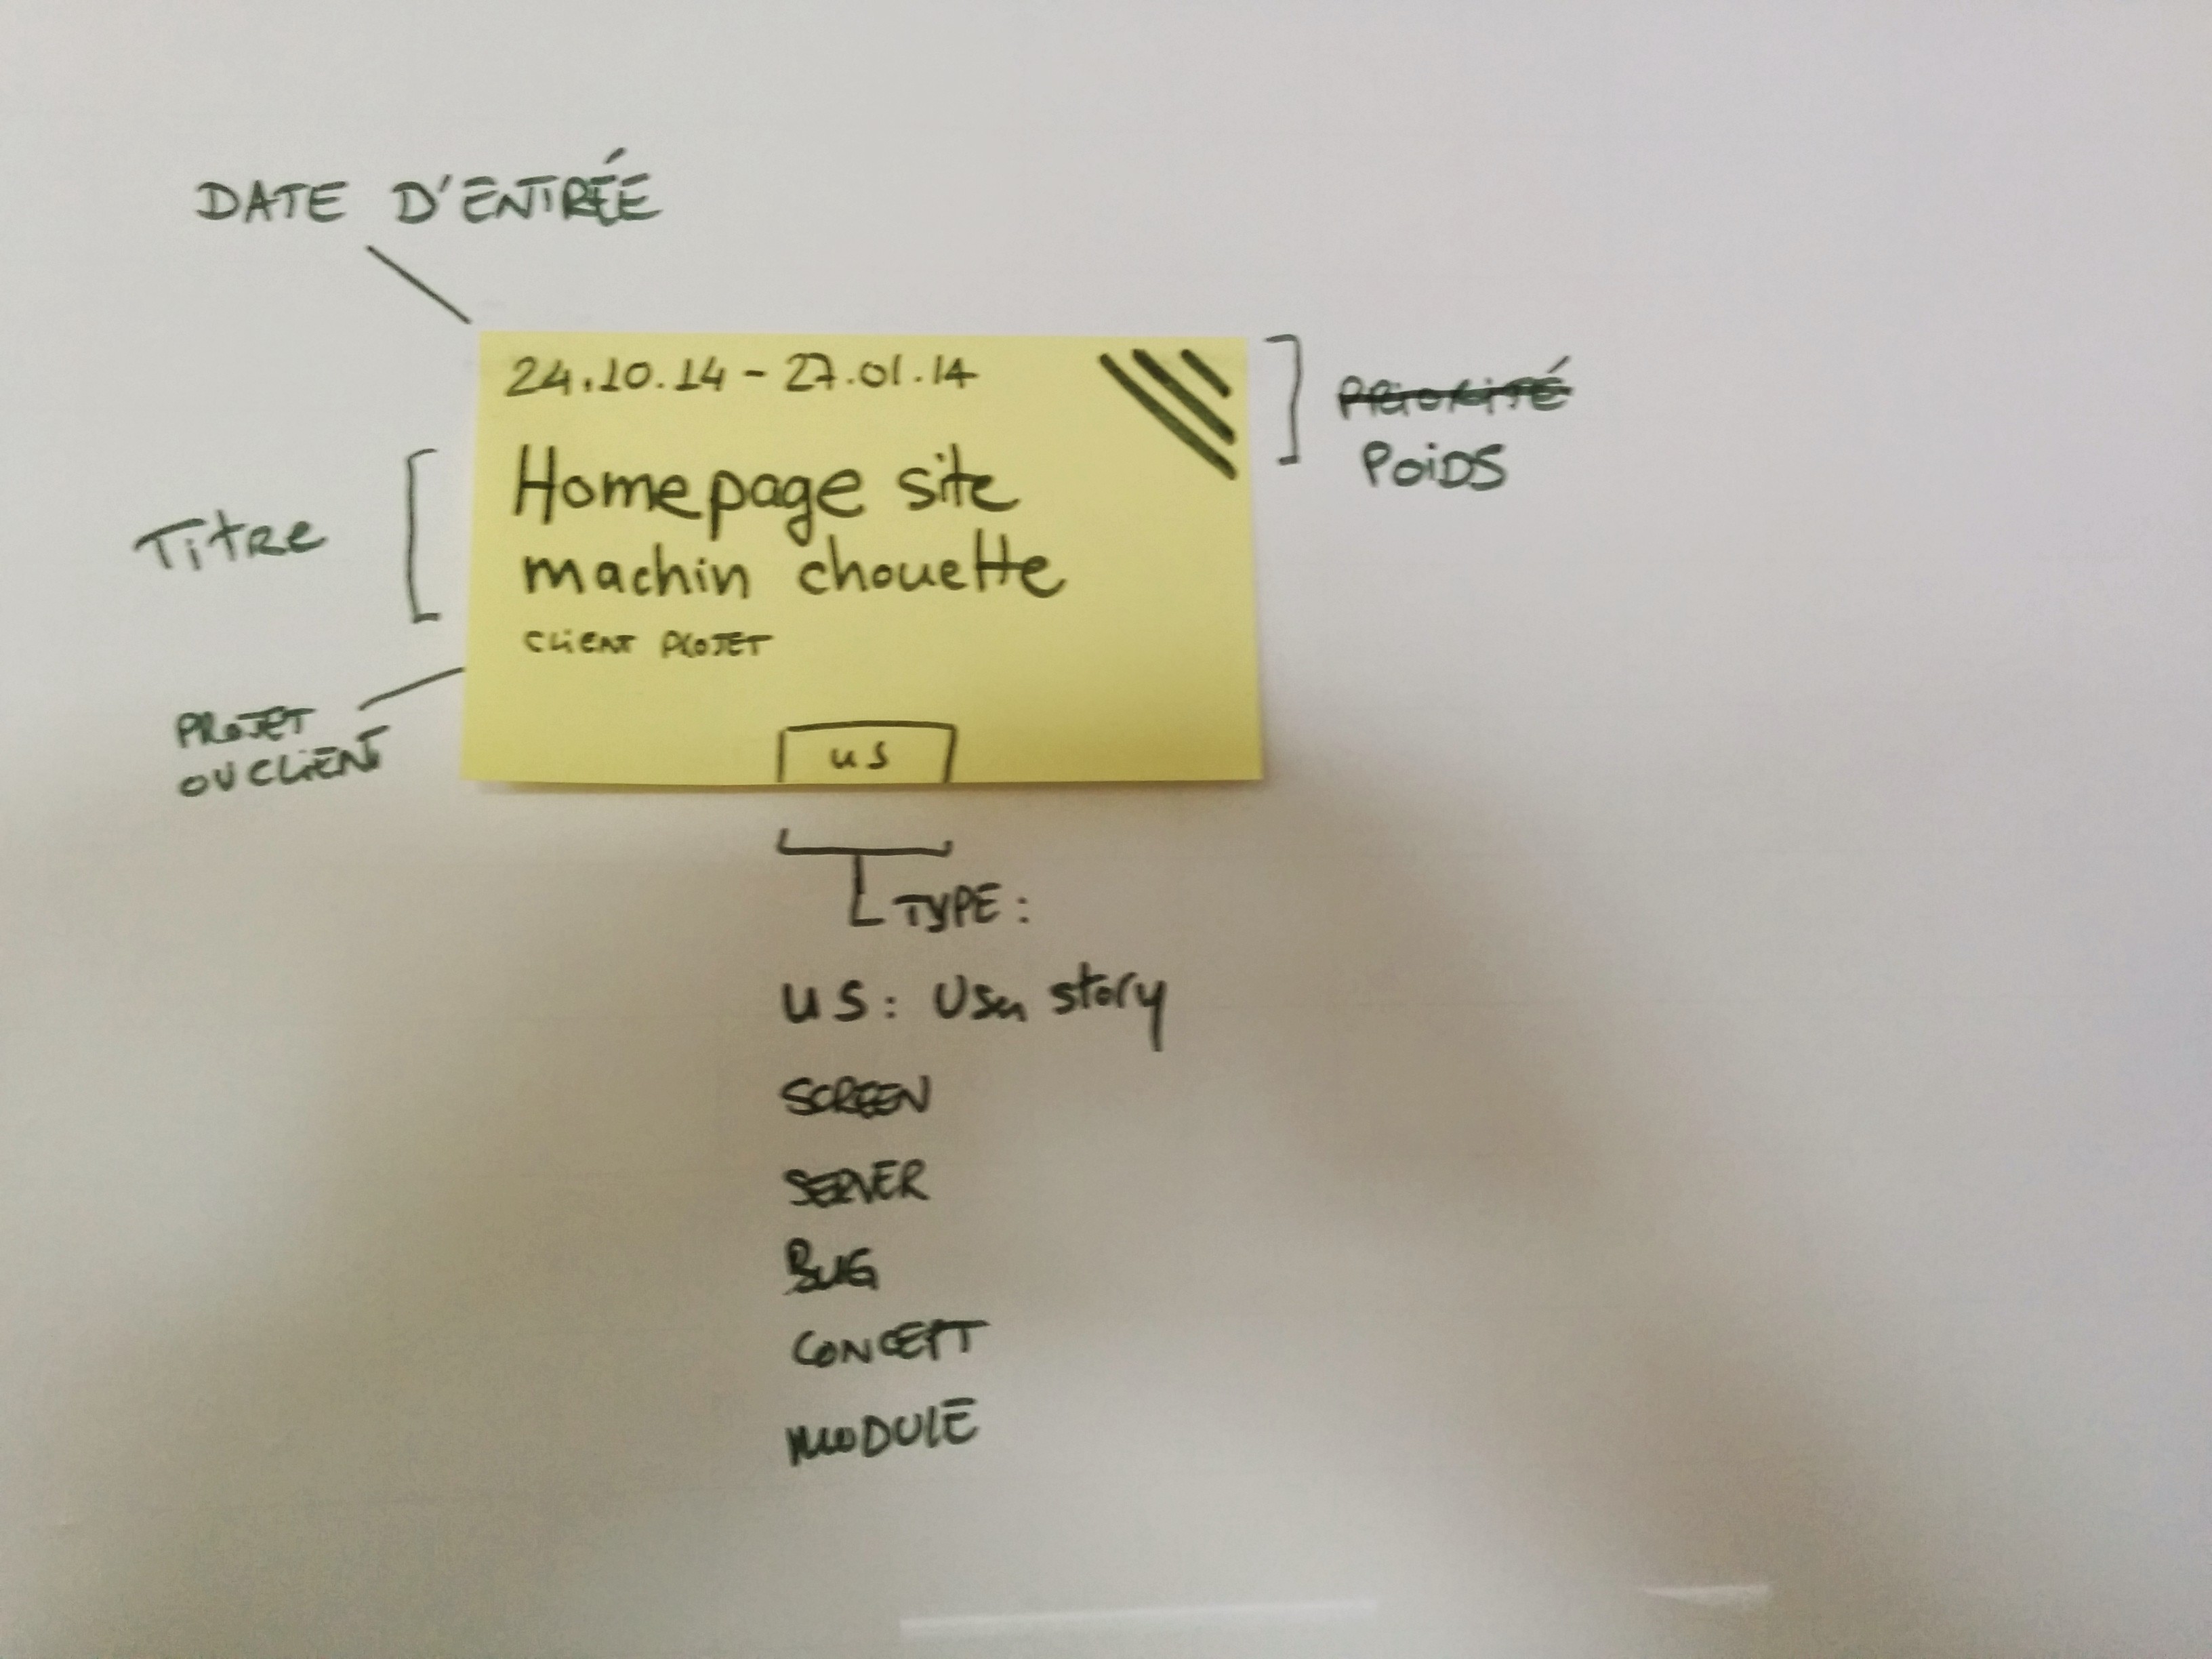 DATE D'ENTRÉE
24.10.14 - 27.01.14
PRIORITÉ
POIDS
Titre
Homepage site
machin chouette
CLIENT PROJET
PROJET
OU CLIENT
US
TYPE :
US : User story
SCREEN
SERVER
BUG
CONCEPT
MODULE